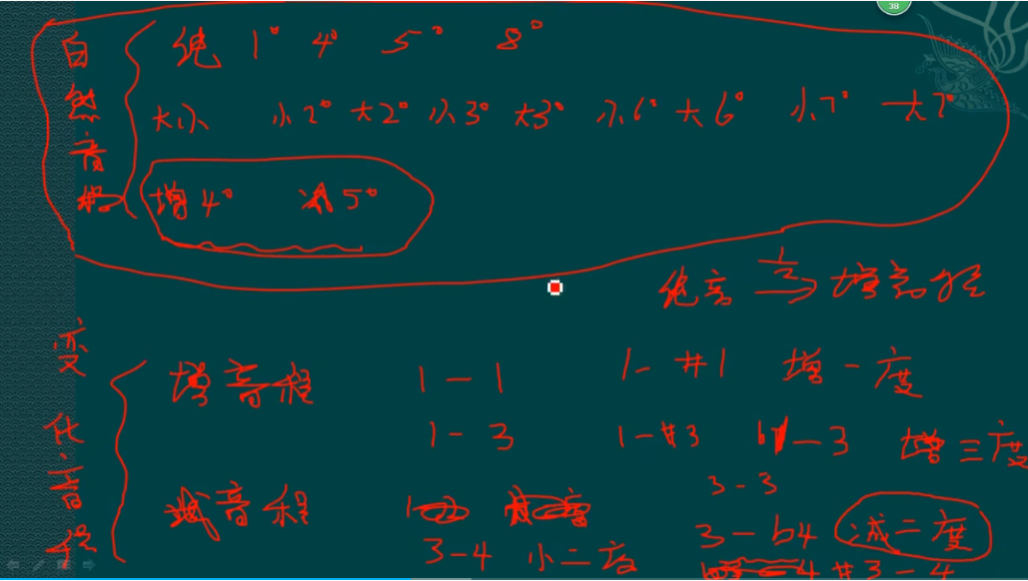 38
自然音程
纯 1° 4° 5° 8°
大小 小2° 大2° 小3° 大3° 小6° 大6° 小7° 大7°
增4° 减5°
纯音 1/2 增音程
变化音程
增音程 1-1 1-#1 增一度
1-3 1-#3 b1-3 增三度
3-3
减音程
3-b4 减二度
3-4 小二度
4 #3-4